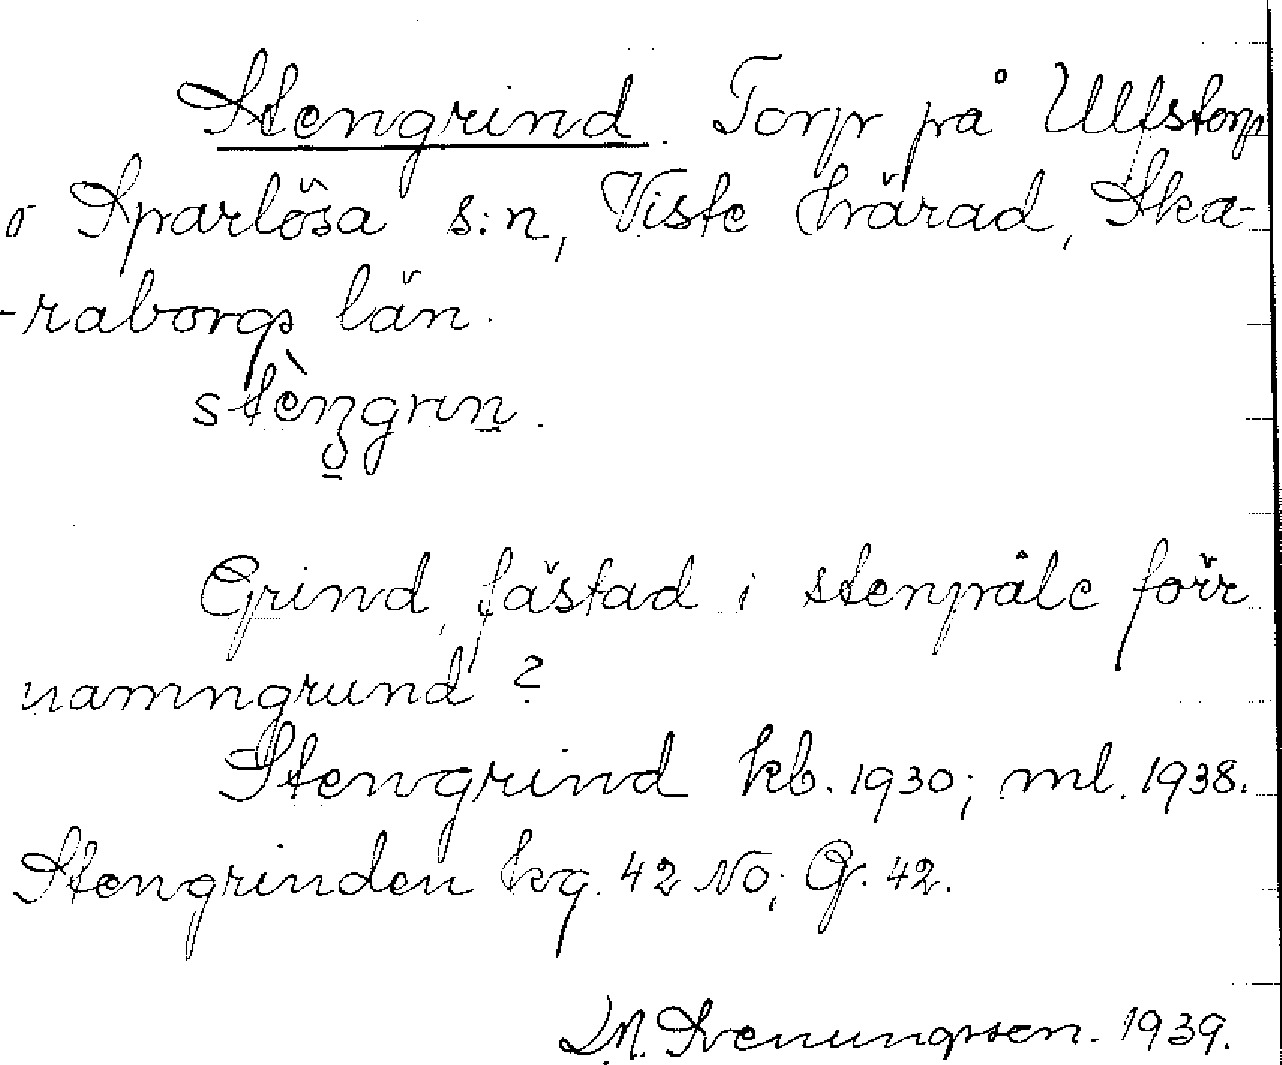 Stengrind. Torp på Ulfstorp
Sparlösa s:n, Viste härad, Ska-
-raborgs län.
stèngrin.
Grind, fästad i stenpåle förr
namngrund?
Stengrind kb. 1930; ml. 1938.
Stengrinden kg. 42 NO; G. 42.
Svenungsson. 1939.